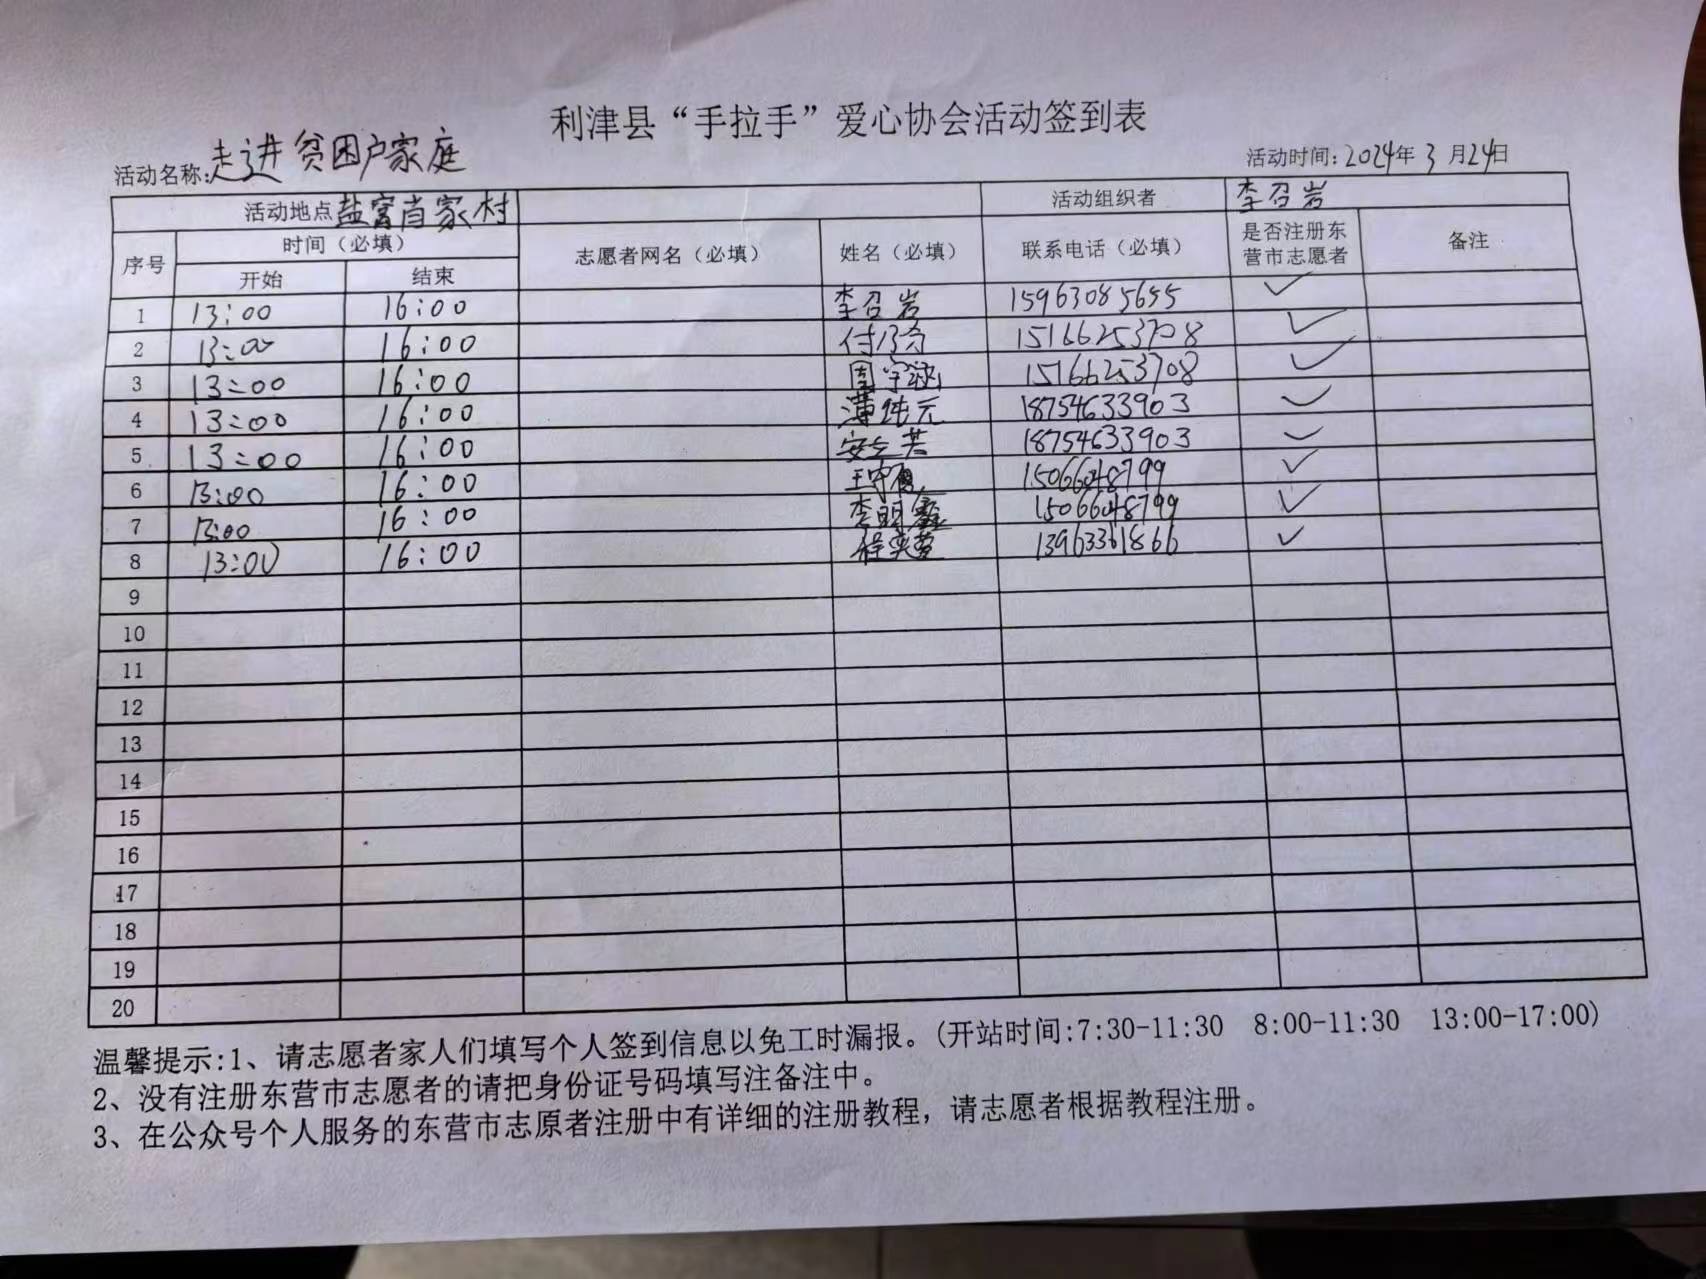 利津县“手拉手”爱心协会活动签到表
活动名称:走进贫困户家庭 活动时间:2024年3月24日
活动地点 盐窝肖家村 活动组织者 李召岩
序号 时间（必填） 志愿者网名（必填） 姓名（必填） 联系电话（必填） 是否注册东营市志愿者 备注
开始 结束
1 13:00 16:00 李召岩 15963085655 ✓
2 13:00 16:00 15166253708 ✓
3 13:00 16:00 周宇涵 15166253708 ✓
4 13:00 16:00 薄纯元 18754633903 ✓
5 13:00 16:00 18754633903 ✓
6 13:00 16:00 15066048799 ✓
7 13:00 16:00 15066048799 ✓
8 13:00 16:00 13963361866 ✓
9
10
11
12
13
14
15
16
17
18
19
20
温馨提示:1、请志愿者家人们填写个人签到信息以免工时漏报。(开站时间:7:30-11:30 8:00-11:30 13:00-17:00)
2、没有注册东营市志愿者的请把身份证号码填写注备注中。
3、在公众号个人服务的东营市志原者注册中有详细的注册教程，请志愿者根据教程注册。